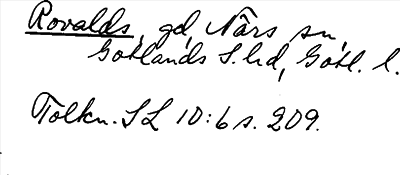 Rovalds, gd, Närs sn,
Gotlands S. hd, Gotl. l.
Tolkn. SL 10:6 s. 209.